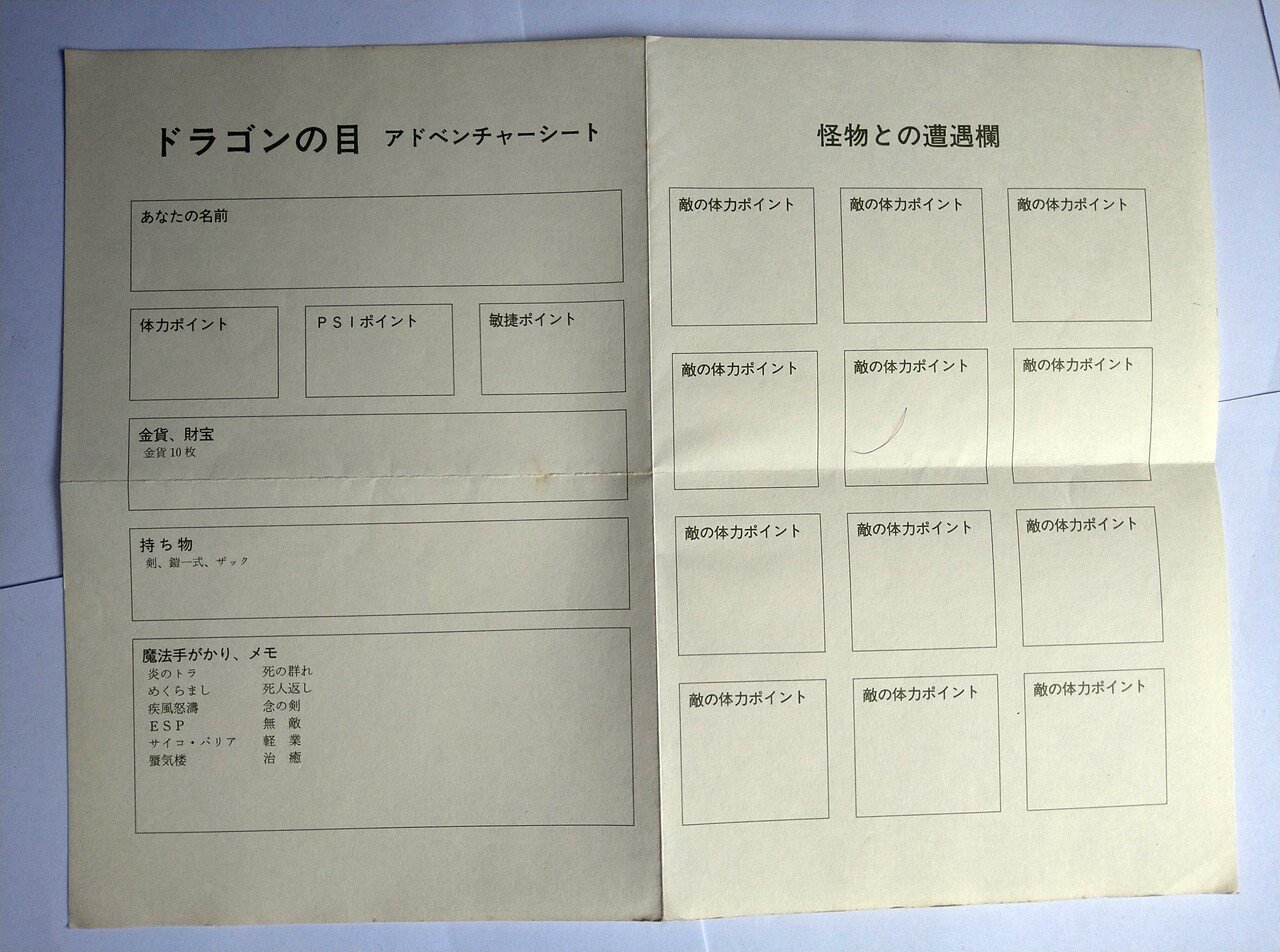 ドラゴンの目 アドベンチャーシート
あなたの名前
体力ポイント
PSIポイント
敏捷ポイント
金貨、財宝
金貨10枚
持ち物
剣、鎧一式、ザック
魔法手がかり、メモ
炎のトラ 死の群れ
めくらまし 死人返し
疾風怒濤 念の剣
ESP 無 敵
サイコ・バリア 軽 業
蜃気楼 治 癒
怪物との遭遇欄
敵の体力ポイント 敵の体力ポイント 敵の体力ポイント
敵の体力ポイント 敵の体力ポイント 敵の体力ポイント
敵の体力ポイント 敵の体力ポイント 敵の体力ポイント
敵の体力ポイント 敵の体力ポイント 敵の体力ポイント